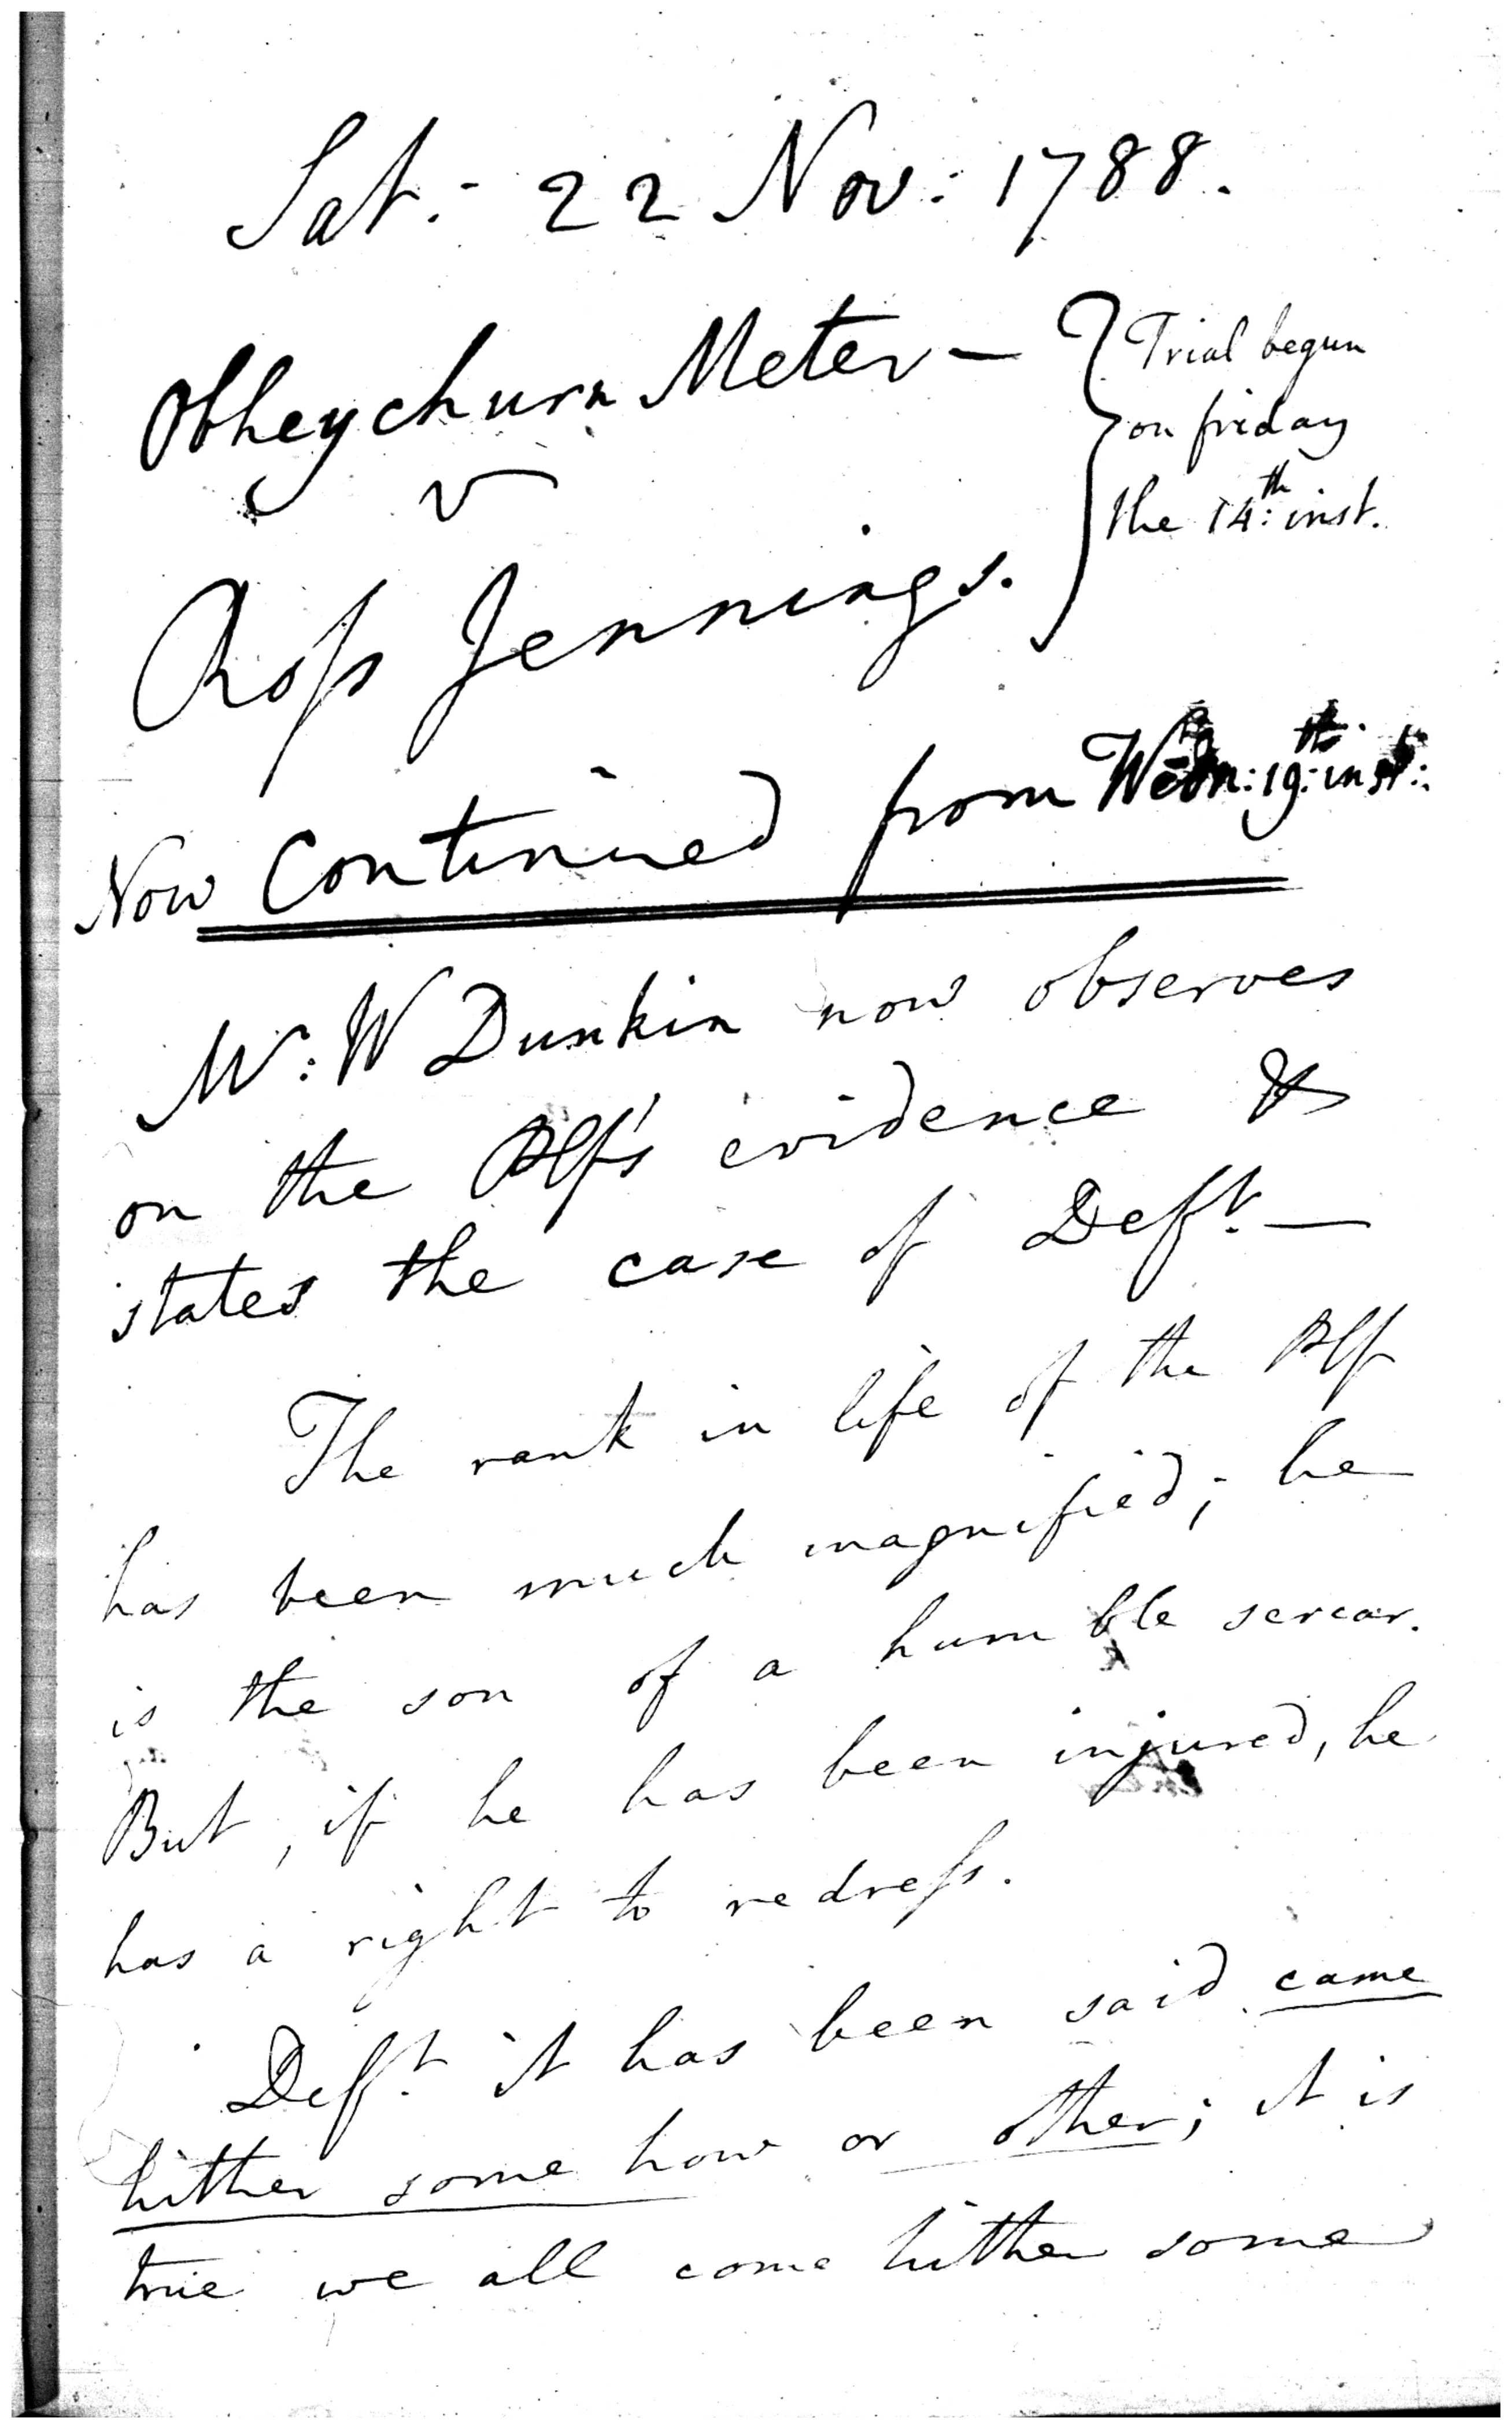 Sat: 22 Nov: 1788.
Obheychurn Meter —
v
Ross Jennings.
Trial begun
on friday
the 14:th inst.
Now Continued from Wedn: 19:th inst:
Mr: W Dunkin now observes
on the Plf's evidence &
states the case of Deft. —
The rank in life of the Plf
has been much magnified; he
is the son of a humble sercar.
But, if he has been injured, he
has a right to redress.
Deft. it has been said came
hither some how or other; it is
true we all come hither some